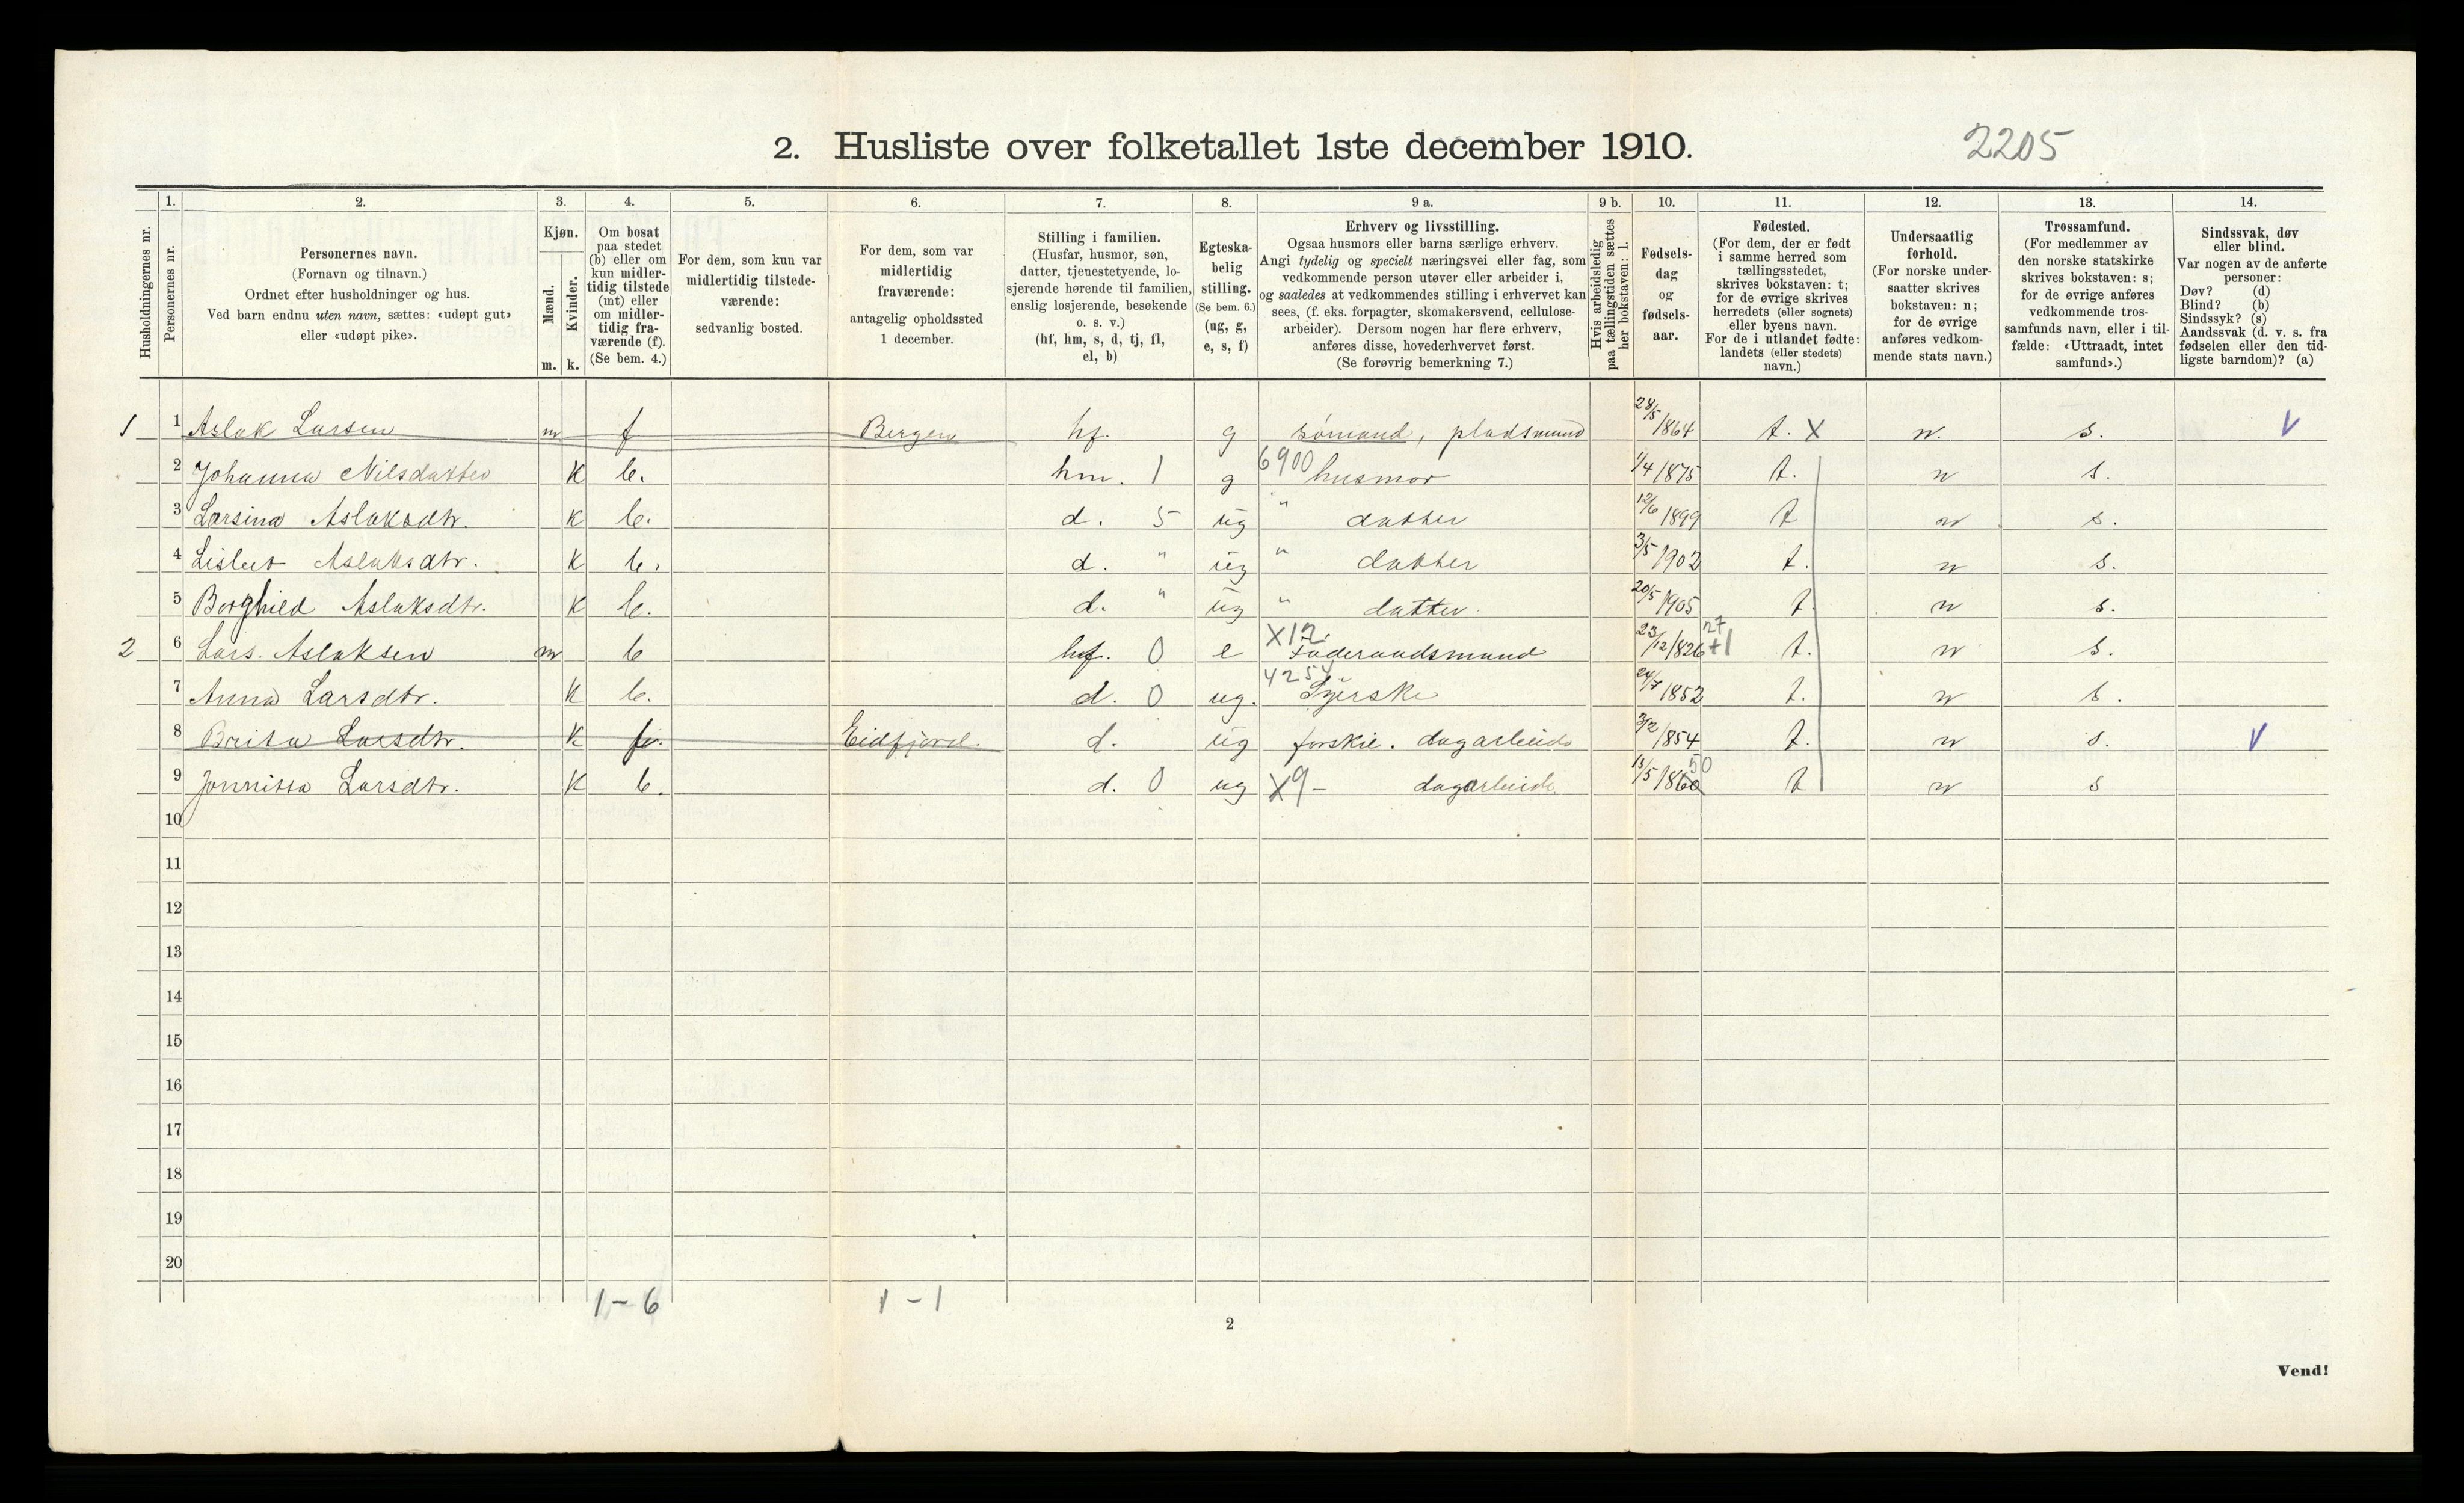 2. Husliste over folketallet 1ste december 1910.
2205
Husholdningernes nr.
1. Personernes nr.
2. Personernes navn.
(Fornavn og tilnavn.)
Ordnet efter husholdninger og hus.
Ved barn endnu uten navn, sættes: «udøpt gut»
eller «udøpt pike».
3. Kjøn.
Mænd. m.
Kvinder. k.
4. Om bosat
paa stedet
(b) eller om
kun midler-
tidig tilstede
(mt) eller
om midler-
tidig fra-
værende (f).
(Se bem. 4.)
5. For dem, som kun var
midlertidig tilstede-
værende:
sedvanlig bosted.
6. For dem, som var
midlertidig
fraværende:
antagelig opholdssted
1 december.
7. Stilling i familien.
(Husfar, husmor, søn,
datter, tjenestetyende, lo-
sjerende hørende til familien,
enslig losjerende, besøkende
o. s. v.)
(hf, hm, s, d, tj, fl,
el, b)
8. Egteska-
belig
stilling.
(Se bem. 6.)
(ug, g,
e, s, f)
9 a. Erhverv og livsstilling.
Ogsaa husmors eller barns særlige erhverv.
Angi tydelig og specielt næringsvei eller fag, som
vedkommende person utøver eller arbeider i,
og saaledes at vedkommendes stilling i erhvervet kan
sees, (f. eks. forpagter, skomakersvend, cellulose-
arbeider). Dersom nogen har flere erhverv,
anføres disse, hovederhvervet først.
(Se forøvrig bemerkning 7.)
9 b. Hvis arbeidsledig
paa tællingstiden sættes
her bokstaven: l.
10. Fødsels-
dag
og
fødsels-
aar.
11. Fødested.
(For dem, der er født
i samme herred som
tællingsstedet,
skrives bokstaven: t;
for de øvrige skrives
herredets (eller sognets)
eller byens navn.
For de i utlandet fødte:
landets (eller stedets)
navn.)
12. Undersaatlig
forhold.
(For norske under-
saatter skrives
bokstaven: n;
for de øvrige
anføres vedkom-
mende stats navn.)
13. Trossamfund.
(For medlemmer av
den norske statskirke
skrives bokstaven: s;
for de øvrige anføres
vedkommende tros-
samfunds navn, eller i til-
fælde: «Uttraadt, intet
samfund».)
14. Sindssvak, døv
eller blind.
Var nogen av de anførte
personer:
Døv? (d)
Blind? (b)
Sindssyk? (s)
Aandssvak (d. v. s. fra
fødselen eller den tid-
ligste barndom)? (a)
1 1 Aslak Larsen m f Bergen hf. g sømand, pladsmand 28/5 1864 t. X n. s. V
2 Johanna Nilsdatter K b. hm. 1 g 6900 husmor 1/4 1875 t. n s.
3 Larsina Aslaksdtr. K b. d. 5 ug " datter 12/6 1899 t n s.
4 Aslaksdtr. K b. d. " ug " datter 3/5 1902 t. n s.
5 Borghild Aslaksdtr. K b. d. " ug " datter 20/5 1905 t. n s.
2 6 Lars Aslaksen m b hf. 0 e X12 Føderaadsmand 23/12 1826 27 +1 t. n s.
7 Anna Larsdtr. K b. d. 0 ug. 4254 Syerske 24/7 1852 t. n s.
8 Brita Larsdtr. K f. Eidfjord. d. ug forskjl. dagarbeide 3/2 1854 t. n s. V
9 Jonnitta Larsdtr. K b. d. 0 ug X9 - dagarbeide 13/5 1860 50 t n s
10
11
12
13
14
15
16
17
18
19
20
1 - 6 1 - 1
2
Vend!